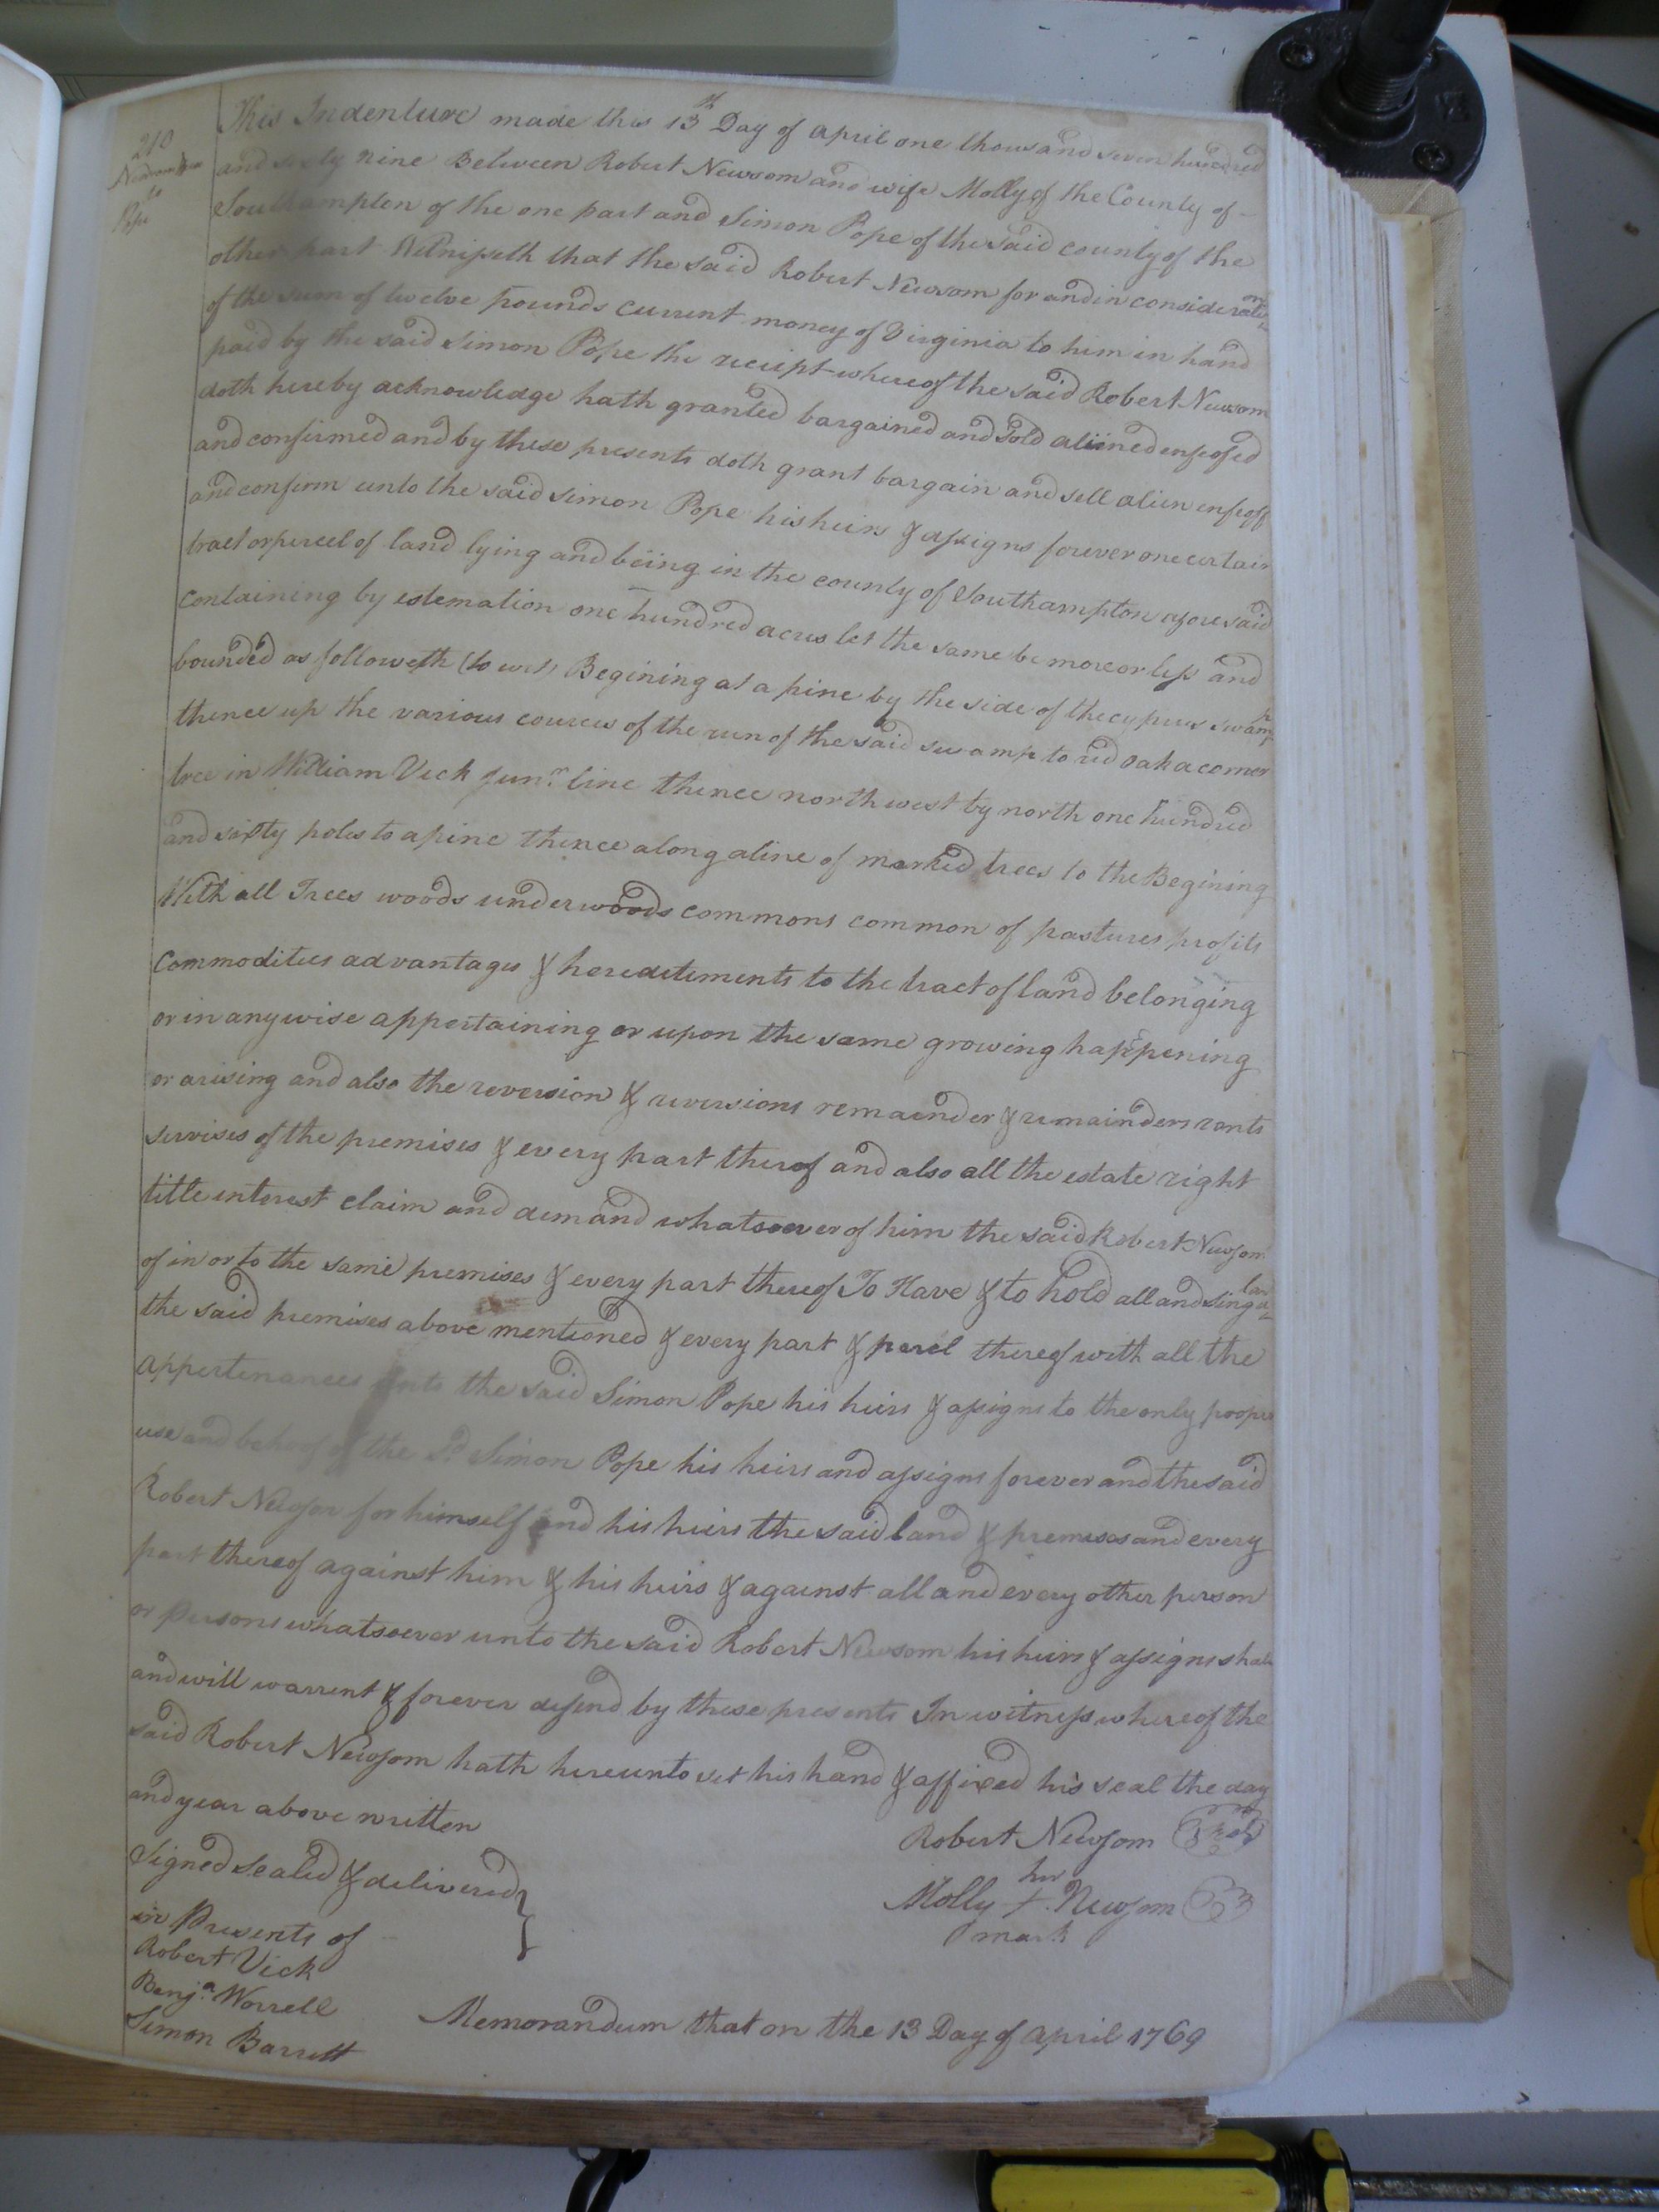 210
Newsom &ux
to
Pope
This Indenture made this 13th Day of april one thousand seven hundred
and sixty nine Between Robert Newsom and wife Molly of the County of
Southampton of the one part and Simon Pope of the said county of the
other part Witnesseth that the said Robert Newsom for and in consideration
of the sum of twelve pounds current money of Virginia to him in hand
paid by the said Simon Pope the reciept whereof the said Robert Newsom
doth hereby acknowledge hath granted bargained and Sold aliined enfeofed
and confirmed and by these presents doth grant bargain and sell alien enfeoff
and confirm unto the said Simon Pope his heirs & assigns forever one certain
tract or percel of land lying and being in the county of Southampton aforesaid
containing by estemation one hundred acres let the same be more or less and
bounded as followeth (to wit) Begining at a pine by the side of the cyprus swamp
thence up the various cources of the run of the said swamp to red oak a corner
tree in William Vick Junr. line thence north west by north one hundred
and sixty poles to a pine thence along a line of marked trees to the Begining
With all Trees woods underwoods commons common of pastures profits
commodities advantages & heredetements to the tract of land belonging
or in any wise appertaining or upon the same growing happening
or arising and also the reversion & reversions remainder & remainders rents
servises of the premises & every part therof and also all the estate right
title interest claim and demand whatsoever of him the said Robert Newsom
of in or to the same premises & every part thereof To Have & to hold all and singular
the said premises above mentioned & every part & parcl thereof with all the
appertenances unto the said Simon Pope his heirs & assigns to the only proper
use and behoof of the Sd. Simon Pope his heirs and assigns forever and the said
Robert Newsom for himself and his heirs the said land & premises and every
part thereof against him & his heirs & against all and every other person
or persons whatsoever unto the said Robert Newsom his heirs & assigns shall
and will warrent & forever defend by these presents In witness whereof the
said Robert Newsom hath hereunto set his hand & affixed his seal the day
and year above written
Robert Newsom Seal
Signed Sealed & delivered
her
Molly + Newsom
mark
in Presents of
Robert Vick
Benja. Worrell
Simon Barrett
Memorandum that on the 13 Day of april 1769